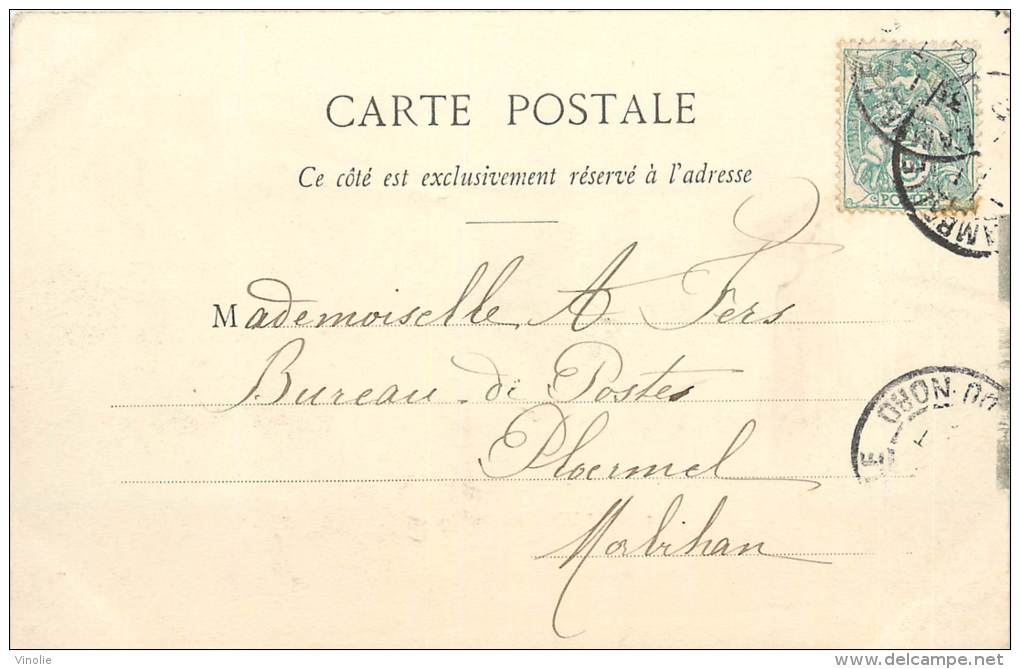 CARTE POSTALE
Ce côté est exclusivement réservé à l'adresse
Mademoiselle A Fers
Bureau de Postes
Ploermel
Morbihan
POSTE
DU-NORD
Vinolie
www.delcampe.net